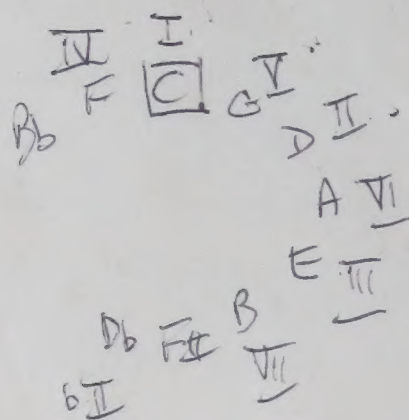 IV I
Bb F C G V
D II
A VI
E III
Db F# B
bII VII